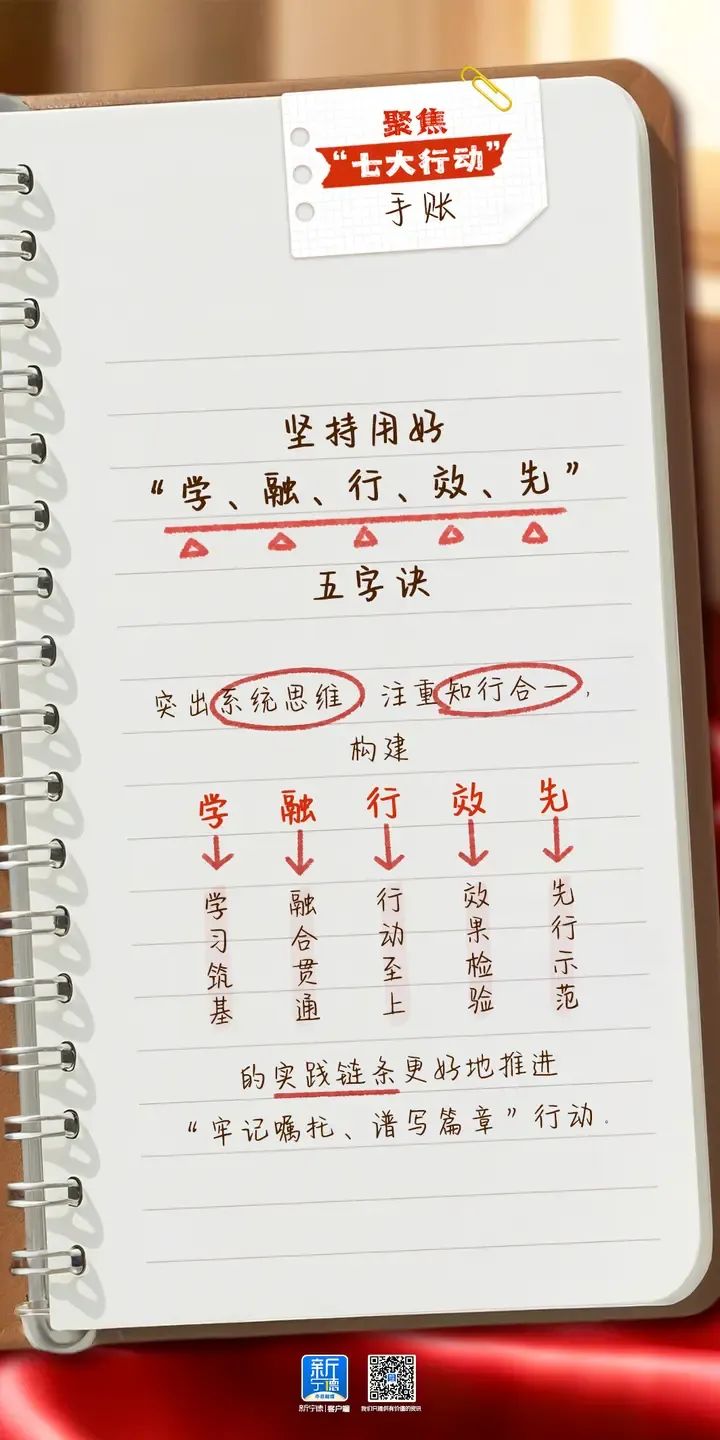 聚焦
“七大行动”
手账
坚持用好
“学、融、行、效、先”
五字诀
突出系统思维，注重知行合一，
构建
学 融 行 效 先
学习筑基
融合贯通
行动至上
效果检验
先行示范
的实践链条更好地推进
“牢记嘱托、谱写篇章”行动。
新宁德
新宁德|客户端
我们只提供有价值的资讯